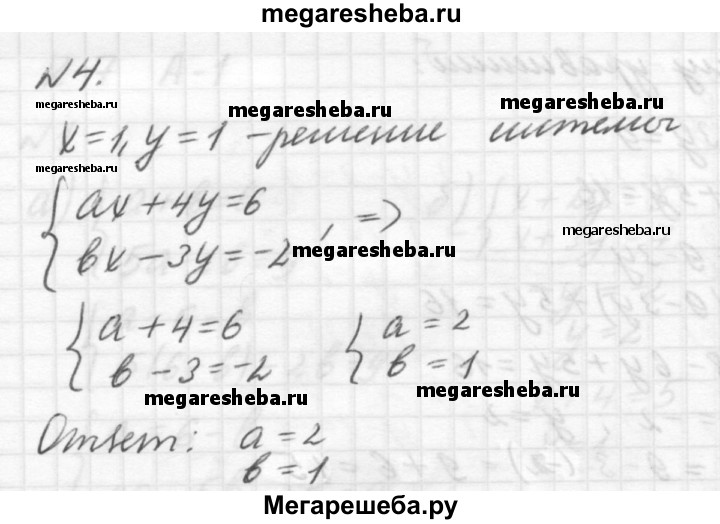 megaresheba.ru
№4.
megaresheba.ru megaresheba.ru megaresheba.ru
x=1, y=1 - решение системы
megaresheba.ru
{ ax+4y=6
bx-3y=-2 , =>
megaresheba.ru megaresheba.ru
{ a+4=6 { a=2
b-3=-2 b=1
megaresheba.ru megaresheba.ru
Ответ: a=2
b=1
Мегарешеба.ру